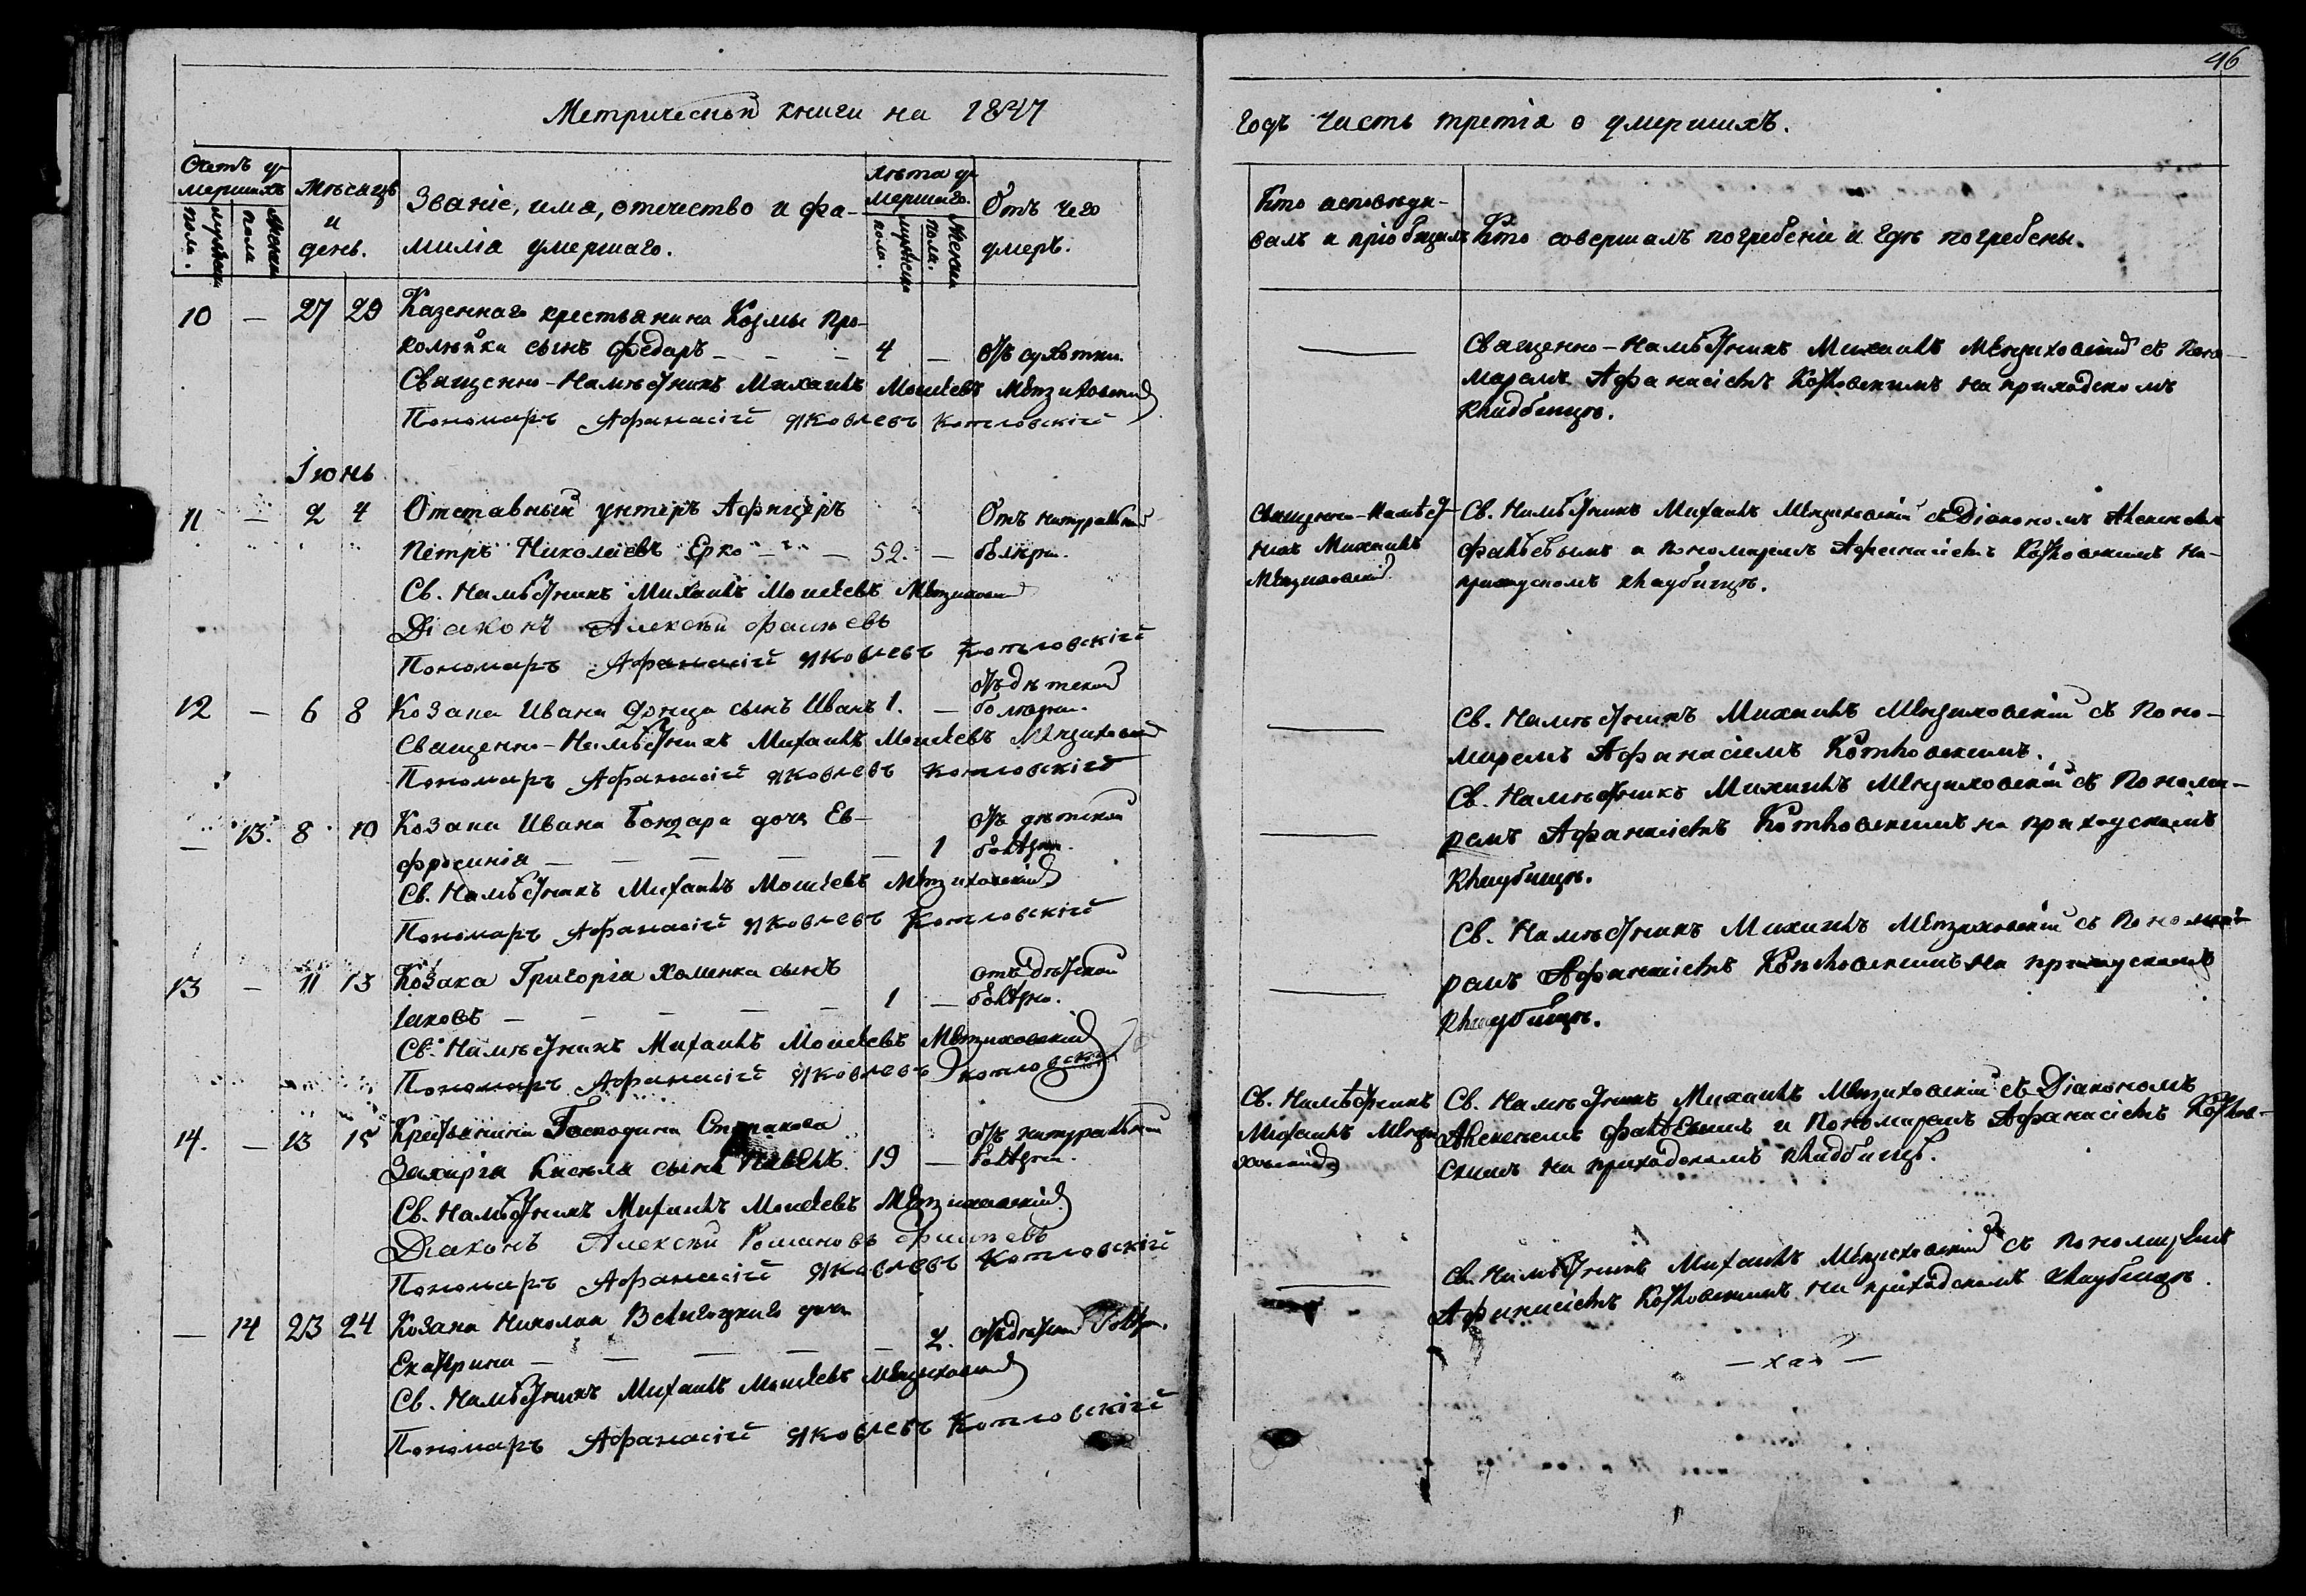 46
Метрической книги на 1847
Счетъ у-
мершихъ
мужеска
пола.
Женска
пола
Мѣсяцъ
и
день.
Званіе, имя, отчество и фа-
милія умершаго.
Лѣта у-
мершаго.
мужеска
пола.
Женска
пола.
Отъ чего
умеръ.
10 — 27 29 Казеннаго крестьянина Козмы Про-
сынъ Федоръ — — — 4 — Отъ сухотки.
Священно-Намѣстникъ Михаилъ Моисеевъ
Пономарь Афанасій Яковлевъ Котловскій
Іюнь
11 — 2 4 Отставный унтеръ Афицеръ Отъ натуральной
Петръ Николаевъ Ерко — — 52. — болѣзни.
Св. Намѣстникъ Михаилъ Моисеевъ
Діаконъ Алексѣй Фалѣевъ
Пономарь Афанасій Яковлевъ Котловскій
Отъ дѣтской
12 — 6 8 Козака Ивана Донца сынъ Иванъ 1. — болѣзни.
Священно-Намѣстникъ Михаилъ Моисеевъ
Пономарь Афанасій Яковлевъ Котловскій
— 13. 8 10 Козака Ивана Бондара дочь Ев- Отъ дѣтской
фросинія — — — — — 1 болѣзни.
Св. Намѣстникъ Михаилъ Моисеевъ
Пономарь Афанасій Яковлевъ Котловскій
13 — 11 13 Козака Григорія Хоменка сынъ Отъ дѣтской
Іаковъ — — — — — 1 — болѣзни.
Св. Намѣстникъ Михаилъ Моисеевъ
Пономарь Афанасій Яковлевъ Котловскій
14. — 13 15 Крестьянина Господина Отъ натуральной
Захарія сынъ Павелъ. 19 — болѣзни.
Св. Намѣстникъ Михаилъ Моисеевъ
Діаконъ Алексѣй Романовъ Фалѣевъ
Пономарь Афанасій Яковлевъ Котловскій
— 14 23 24 Козака Николая дочь
Екатерина — — — — — 2. Отъ дѣтской болѣзни.
Св. Намѣстникъ Михаилъ Моисеевъ
Пономарь Афанасій Яковлевъ Котловскій
годъ часть третія о умершихъ.
Кто исповѣды-
валъ и пріобщалъ
Кто совершалъ погребеніе и гдѣ погребены.
— Священно-Намѣстникъ Михаилъ съ Поно-
маремъ Афанасіемъ Котловскимъ на приходскомъ
кладбищѣ.
Священно-Намѣст- Св. Намѣстникъ Михаилъ съ Діакономъ Алексѣемъ
никъ Михаилъ Фалѣевымъ и Пономаремъ Афанасіемъ Котловскимъ на
приходскомъ кладбищѣ.
— Св. Намѣстникъ Михаилъ съ Поно-
маремъ Афанасіемъ Котловскимъ.
— Св. Намѣстникъ Михаилъ съ Понома-
ремъ Афанасіемъ Котловскимъ на приходскомъ
кладбищѣ.
— Св. Намѣстникъ Михаилъ съ Понома-
ремъ Афанасіемъ Котловскимъ на приходскомъ
кладбищѣ.
Св. Намѣстникъ Св. Намѣстникъ Михаилъ съ Діакономъ
Михаилъ Алексѣемъ Фалѣевымъ и Пономаремъ Афанасіемъ Котлов-
скимъ на приходскомъ кладбищѣ.
— Св. Намѣстникъ Михаилъ съ Пономаремъ
Афанасіемъ Котловскимъ на приходскомъ кладбищѣ.